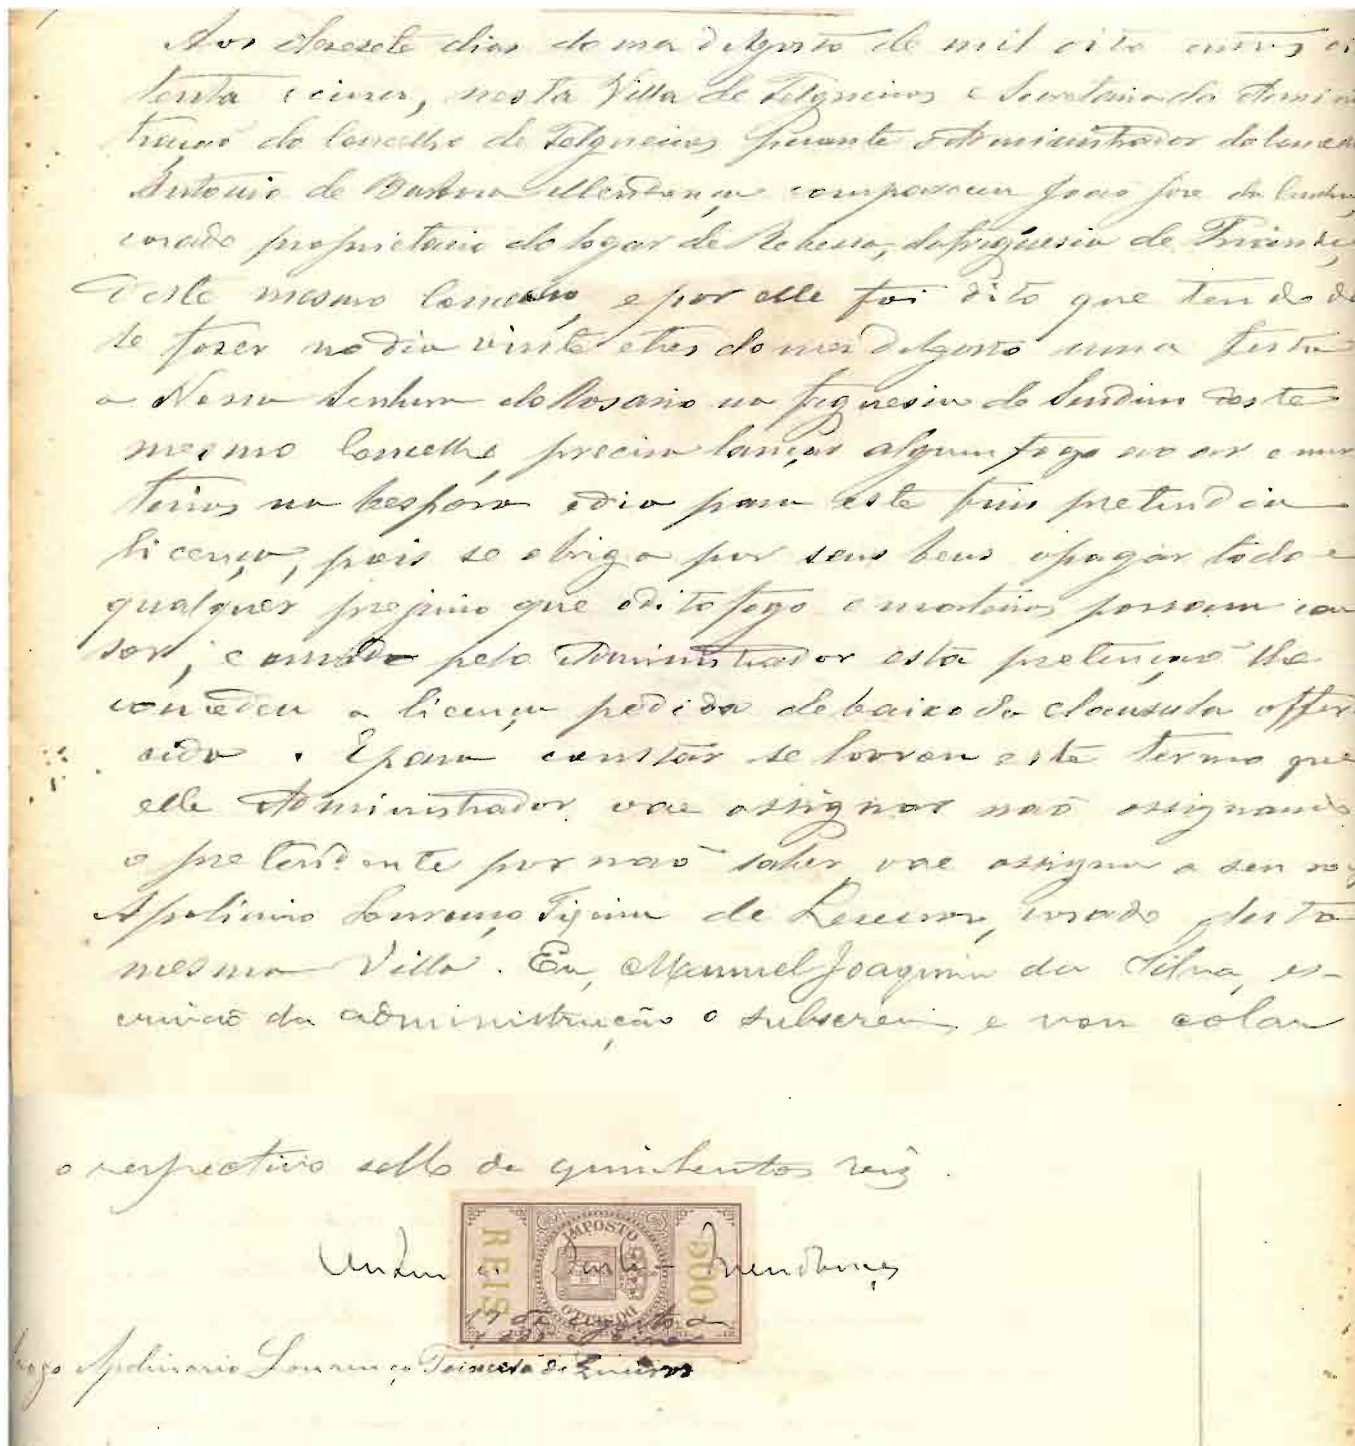 Aos desesete dias do mes d'Agosto de mil oito centos oi
tenta e cinco, nesta Villa de Felgueiras e Secretaria da Admi
tração do Concelho de Felgueiras perante o Administrador do Conce
Antonio de Barbosa Mendonça compareceu João José da Cunha,
casado proprietario do logar de freguesia de
deste mesmo Concelho, e por elle foi dito que tendo de
se faser no dia vinte e tres do mes d'Agosto uma festa
a Nossa Senhora do Rosario na freguesia de Sendim deste
mesmo Concelho, precisa lançar algum fogo ao ar e mor
teiros na bespora e dia para este fim pretendia
licença, pois se obriga por seus bens a pagar todo e
qualquer prejuiso que o dito fogo e morteiros possam cau
sar; e ouvido pelo Administrador esta pretenção lhe
concedeu a licença pedida debaixo da clausula offer
cida. E para constar se lavrou este termo que
elle Administrador vae assignar não assignando
o pretendente por não saber, vae assignar a seu ro
Apolinario Lourenço Teixeira de casado desta
mesma Villa. Eu, Manuel Joaquim da Silva, es-
crivão da administração o subscrevi e vou colar
o respectivo sello de quinhentos reis.
IMPOSTO
REIS
500
DO SELLO
Antonio de Barbosa Mendonça
17 de Agosto de
rogo Apolinario Lourenço Teixeira de